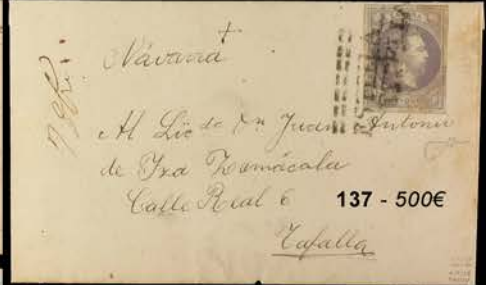 Navarra
Al Lic do Dn Juan Antonio
de Yza Zamácola
Calle Real 6
137 - 500€
Tafalla